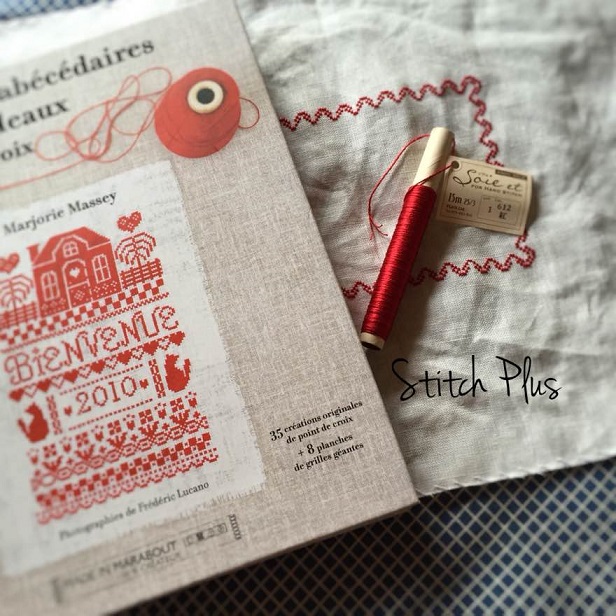 abécédaires
Marjorie Massey
BIENVENUE
2010
35 créations originales
de point de croix
+ 8 planches
de grilles géantes
Photographies de Frédéric Lucano
MADE IN MARABOUT
Soie et
FOR HAND STITCH
15m 25/3
612
Stitch Plus